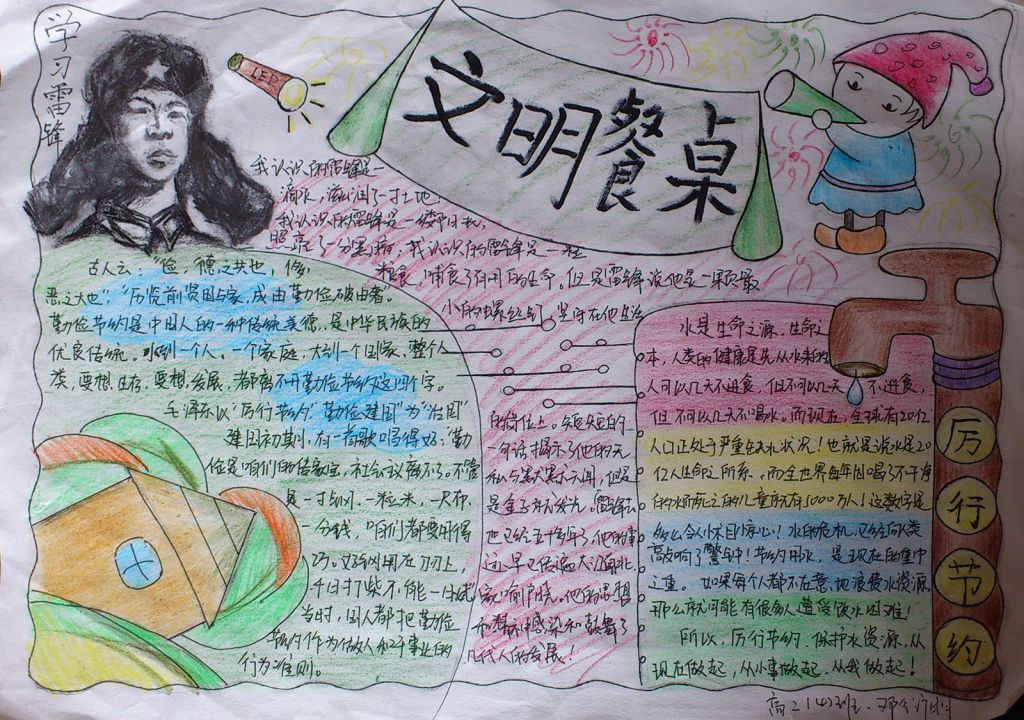 学习雷锋
LED
文明餐桌
我认识的雷锋是一
滴水，滋润了一寸土地
我认识的雷锋是一缕阳光，
照亮了一分黑暗；我认识的雷锋是一粒
粮食，哺育了有用的生命。但是雷锋说他是一颗最
小的螺丝钉 坚守在他生活
的岗位上。短短的一
句话揭示了他的无
私
是金子就发光，雷锋
已经五十年了，他的事
迹早已传遍大江南北，
家
和精神感染和鼓舞了
几代人的发展！
古人云："俭，德之共也，侈，
恶之大也"；"历览前贤国与家，成由勤俭破由奢"。
勤俭节约是中国人的一种传统美德，是中华民族的
优良传统。小到一个人，一个家庭，大到一个国家，整个人
类，要想生存，要想发展，都离不开勤俭节约这四个字。
毛泽东以"厉行节约 勤俭建国"为"治国"
建国初期，有一首歌唱得好："勤
俭是咱们的传家宝，社会主义离不了。不管
是一寸钢，一粒米，一尺布，
一分钱，咱们都要用得
巧。好钢用在刀刃上，
千日打柴不能一日烧"
当时，国人都把勤俭
节约作为做人和干事业的
行为准则。
水是生命之源、生命之
本，人类的健康是先从水来的
人可以几天不进食，但不可以几天 不进食，
但不可以几天不喝水。而现在，全球有20亿
人口正处于严重缺水状况！也就是说水是20
亿人生命之所系，而全世界每年因喝了不干净
的水而死亡的儿童就有5000万人！这数字是
多么令人怵目惊心！水的危机，已经向人类
敲响了警钟！节约用水，是现在的重中
之重。如果每个人都不在意地浪费水资源，
那么就可能有很多人遭受饮水困难！
所以，厉行节约，保护水资源，从
现在做起，从小事做起，从我做起！
厉行节约
高二(4)班